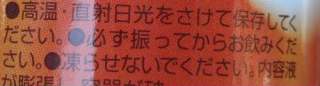 ●高温・直射日光をさけて保存してく
ださい。●必ず振ってからお飲みくだ
さい。●凍らせないでください。内容液
が膨張し